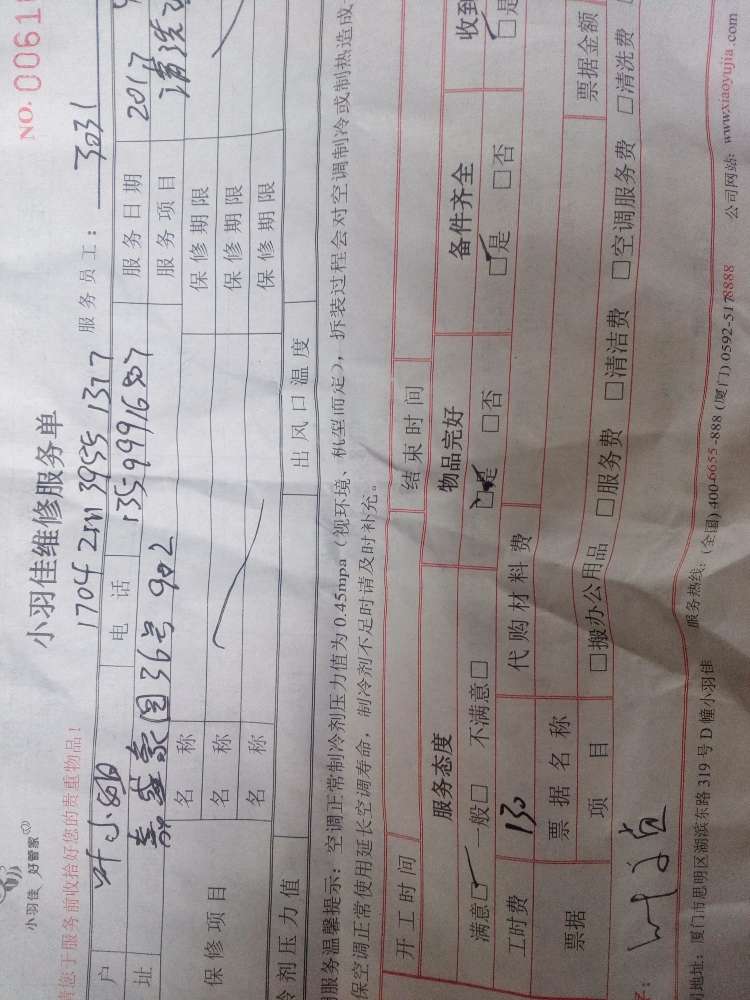 小羽佳 好管家
小羽佳维修服务单
NO. 0061
请您于服务前收拾好您的贵重物品!
服务员工: 3031
户
电话 13599916907
服务日期 2017
址 36号902
服务项目 清洗
保修项目
名称
保修期限
名称
保修期限
名称
保修期限
冷剂压力值
出风口温度
服务温馨提示:空调正常制冷剂压力值为0.45mpa(视环境、机型而定),拆装过程会对空调制冷或制热造成
保空调正常使用延长空调寿命,制冷剂不足时请及时补充。
开工时间
结束时间
服务态度
物品完好
备件齐全
收到
满意☑ 一般□ 不满意□
☑是 □否
☑是 □否
☑是
工时费 130
代购材料费
票据
票据名称
票据金额
项目
□搬办公用品 □服务费 □清洁费 □空调服务费 □清洗费
地址:厦门市思明区湖滨东路319号D幢小羽佳 服务热线:(全国)400-6655-888 (厦门)0592-5178888 公司网站:www.xiaoyujia.com